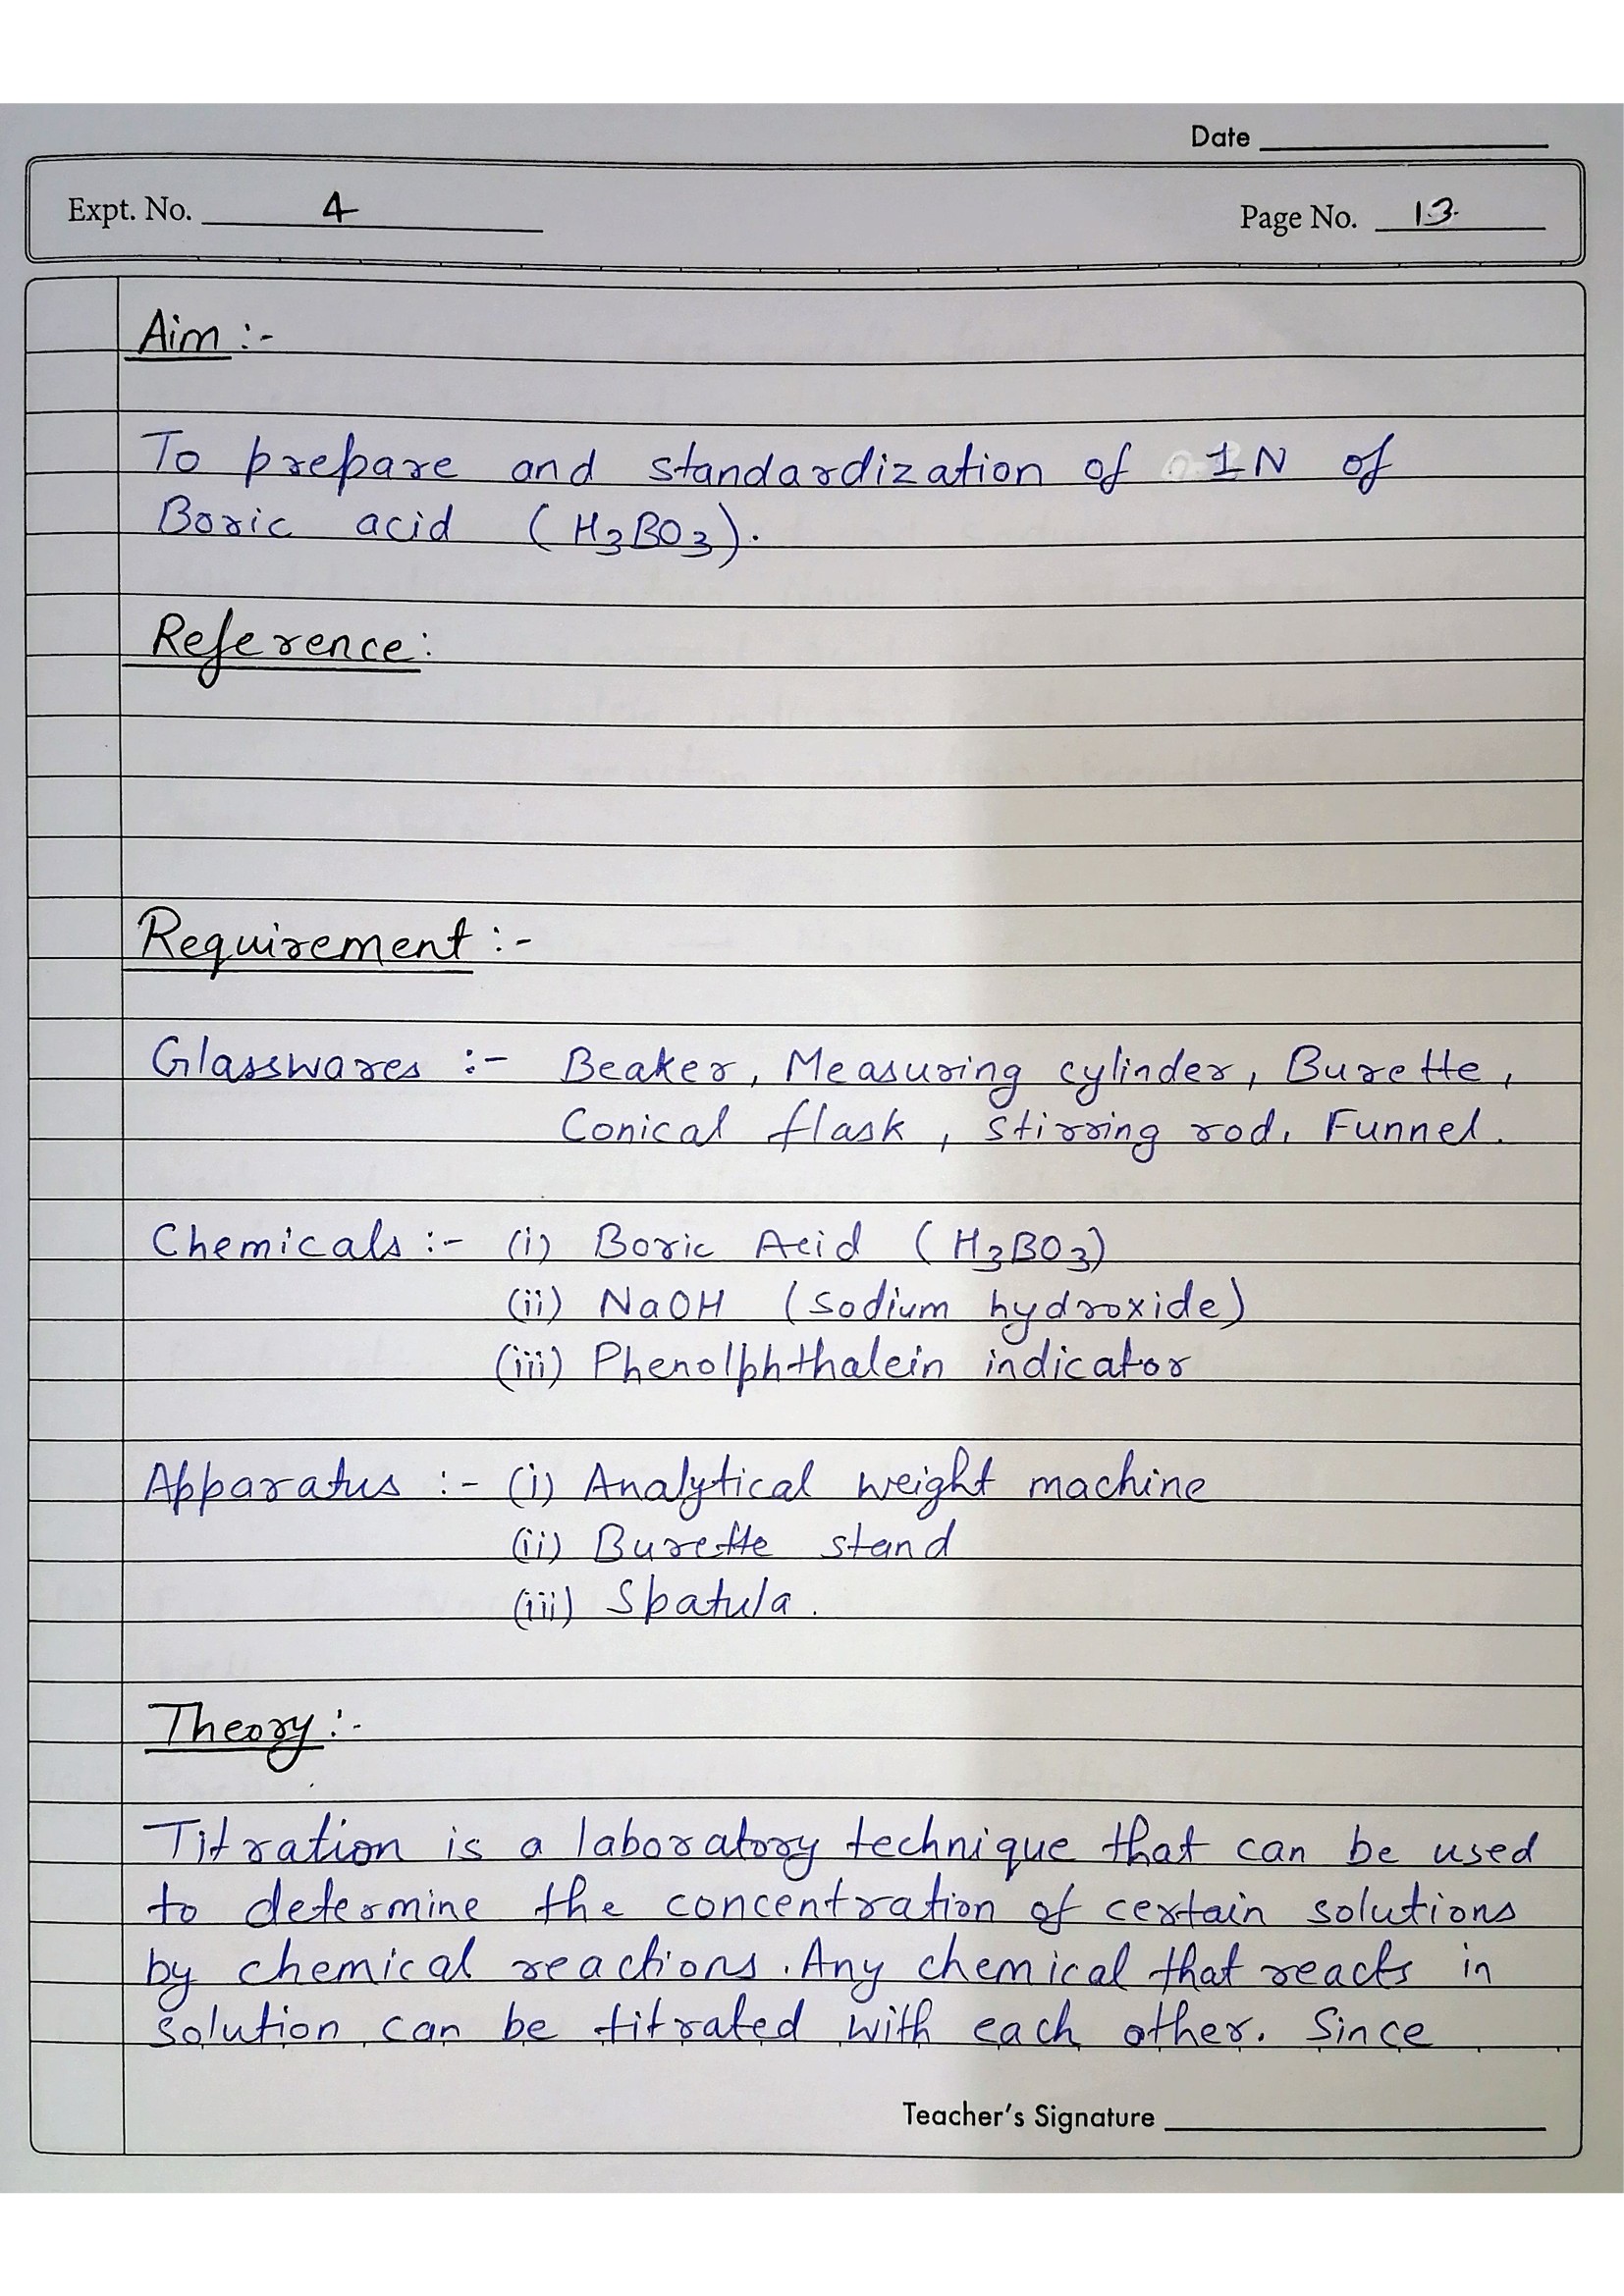 Date
Expt. No. 4
Page No. 13
Aim :-
To prepare and standardization of 1N of
Boric acid (H₃BO₃).
Reference:
Requirement :-
Glasswares :- Beaker, Measuring cylinder, Burette,
Conical flask, Stirring rod, Funnel.
Chemicals :- (i) Boric Acid (H₃BO₃)
(ii) NaOH (sodium hydroxide)
(iii) Phenolphthalein indicator
Apparatus :- (i) Analytical weight machine
(ii) Burette stand
(iii) Spatula.
Theory :-
Titration is a laboratory technique that can be used
to determine the concentration of certain solutions
by chemical reactions. Any chemical that reacts in
solution can be titrated with each other. Since
Teacher's Signature